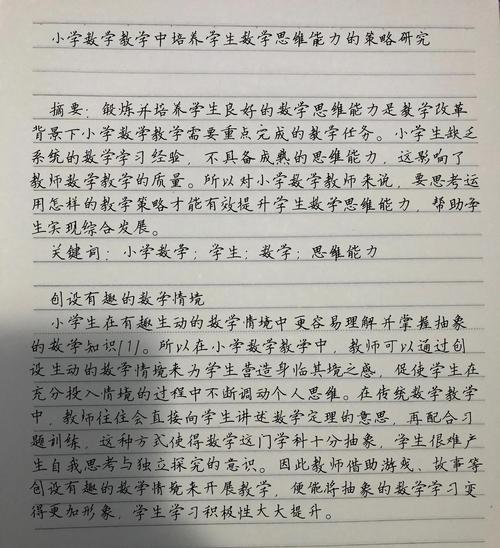 小学数学教学中培养学生数学思维能力的策略研究
摘要：锻炼并培养学生良好的数学思维能力是教学改革
背景下小学数学教学需要重点完成的教学任务。小学生缺乏
系统的数学学习经验，不具备成熟的思维能力，这影响了
教师数学教学的质量。所以对小学数学教师来说，要思考运
用怎样的教学策略才能有效提升学生数学思维能力，帮助学
生实现综合发展。
关键词：小学数学；学生；数学；思维能力
创设有趣的数学情境
小学生在有趣生动的数学情境中更容易理解并掌握抽象
的数学知识[1]。所以在小学数学教学中，教师可以通过创
设生动的数学情境来为学生营造身临其境之感，促使学生在
充分投入情境的过程中不断调动个人思维。在传统数学教学
中，教师往往会直接向学生讲述数学定理的意思，再配合习
题训练，这种方式使得数学这门学科十分抽象，学生很难产
生自我思考与独立探究的意识。因此教师借助游戏、故事等
创设有趣的数学情境来开展教学，便能将抽象的数学学习变
得更加形象，学生学习积极性大大提升。